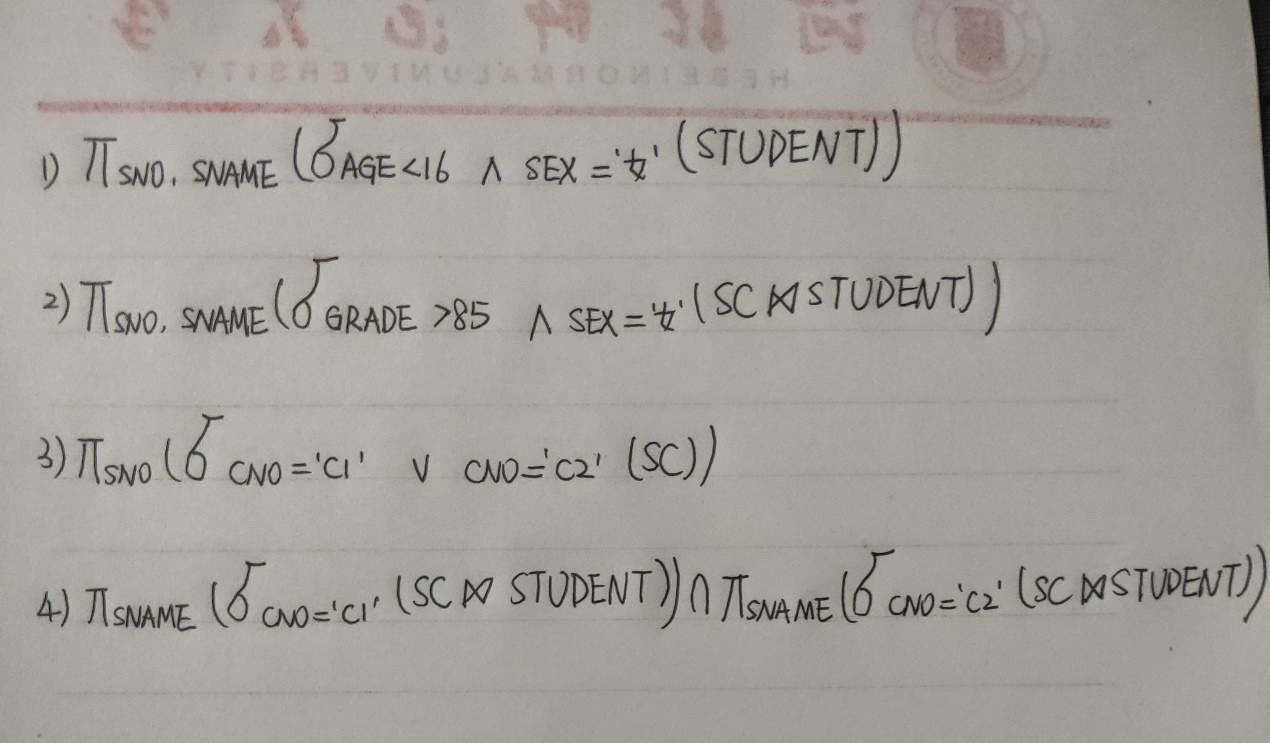 HEBEI NORMAL UNIVERSITY
1) π SNO, SNAME (σ AGE<16 ∧ SEX='女' (STUDENT))
2) π SNO, SNAME (σ GRADE >85 ∧ SEX='女' (SC⋈STUDENT))
3) π SNO (σ CNO='C1' ∨ CNO='C2' (SC))
4) π SNAME (σ CNO='C1' (SC ⋈ STUDENT)) ∩ π SNAME (σ CNO='C2' (SC ⋈ STUDENT))